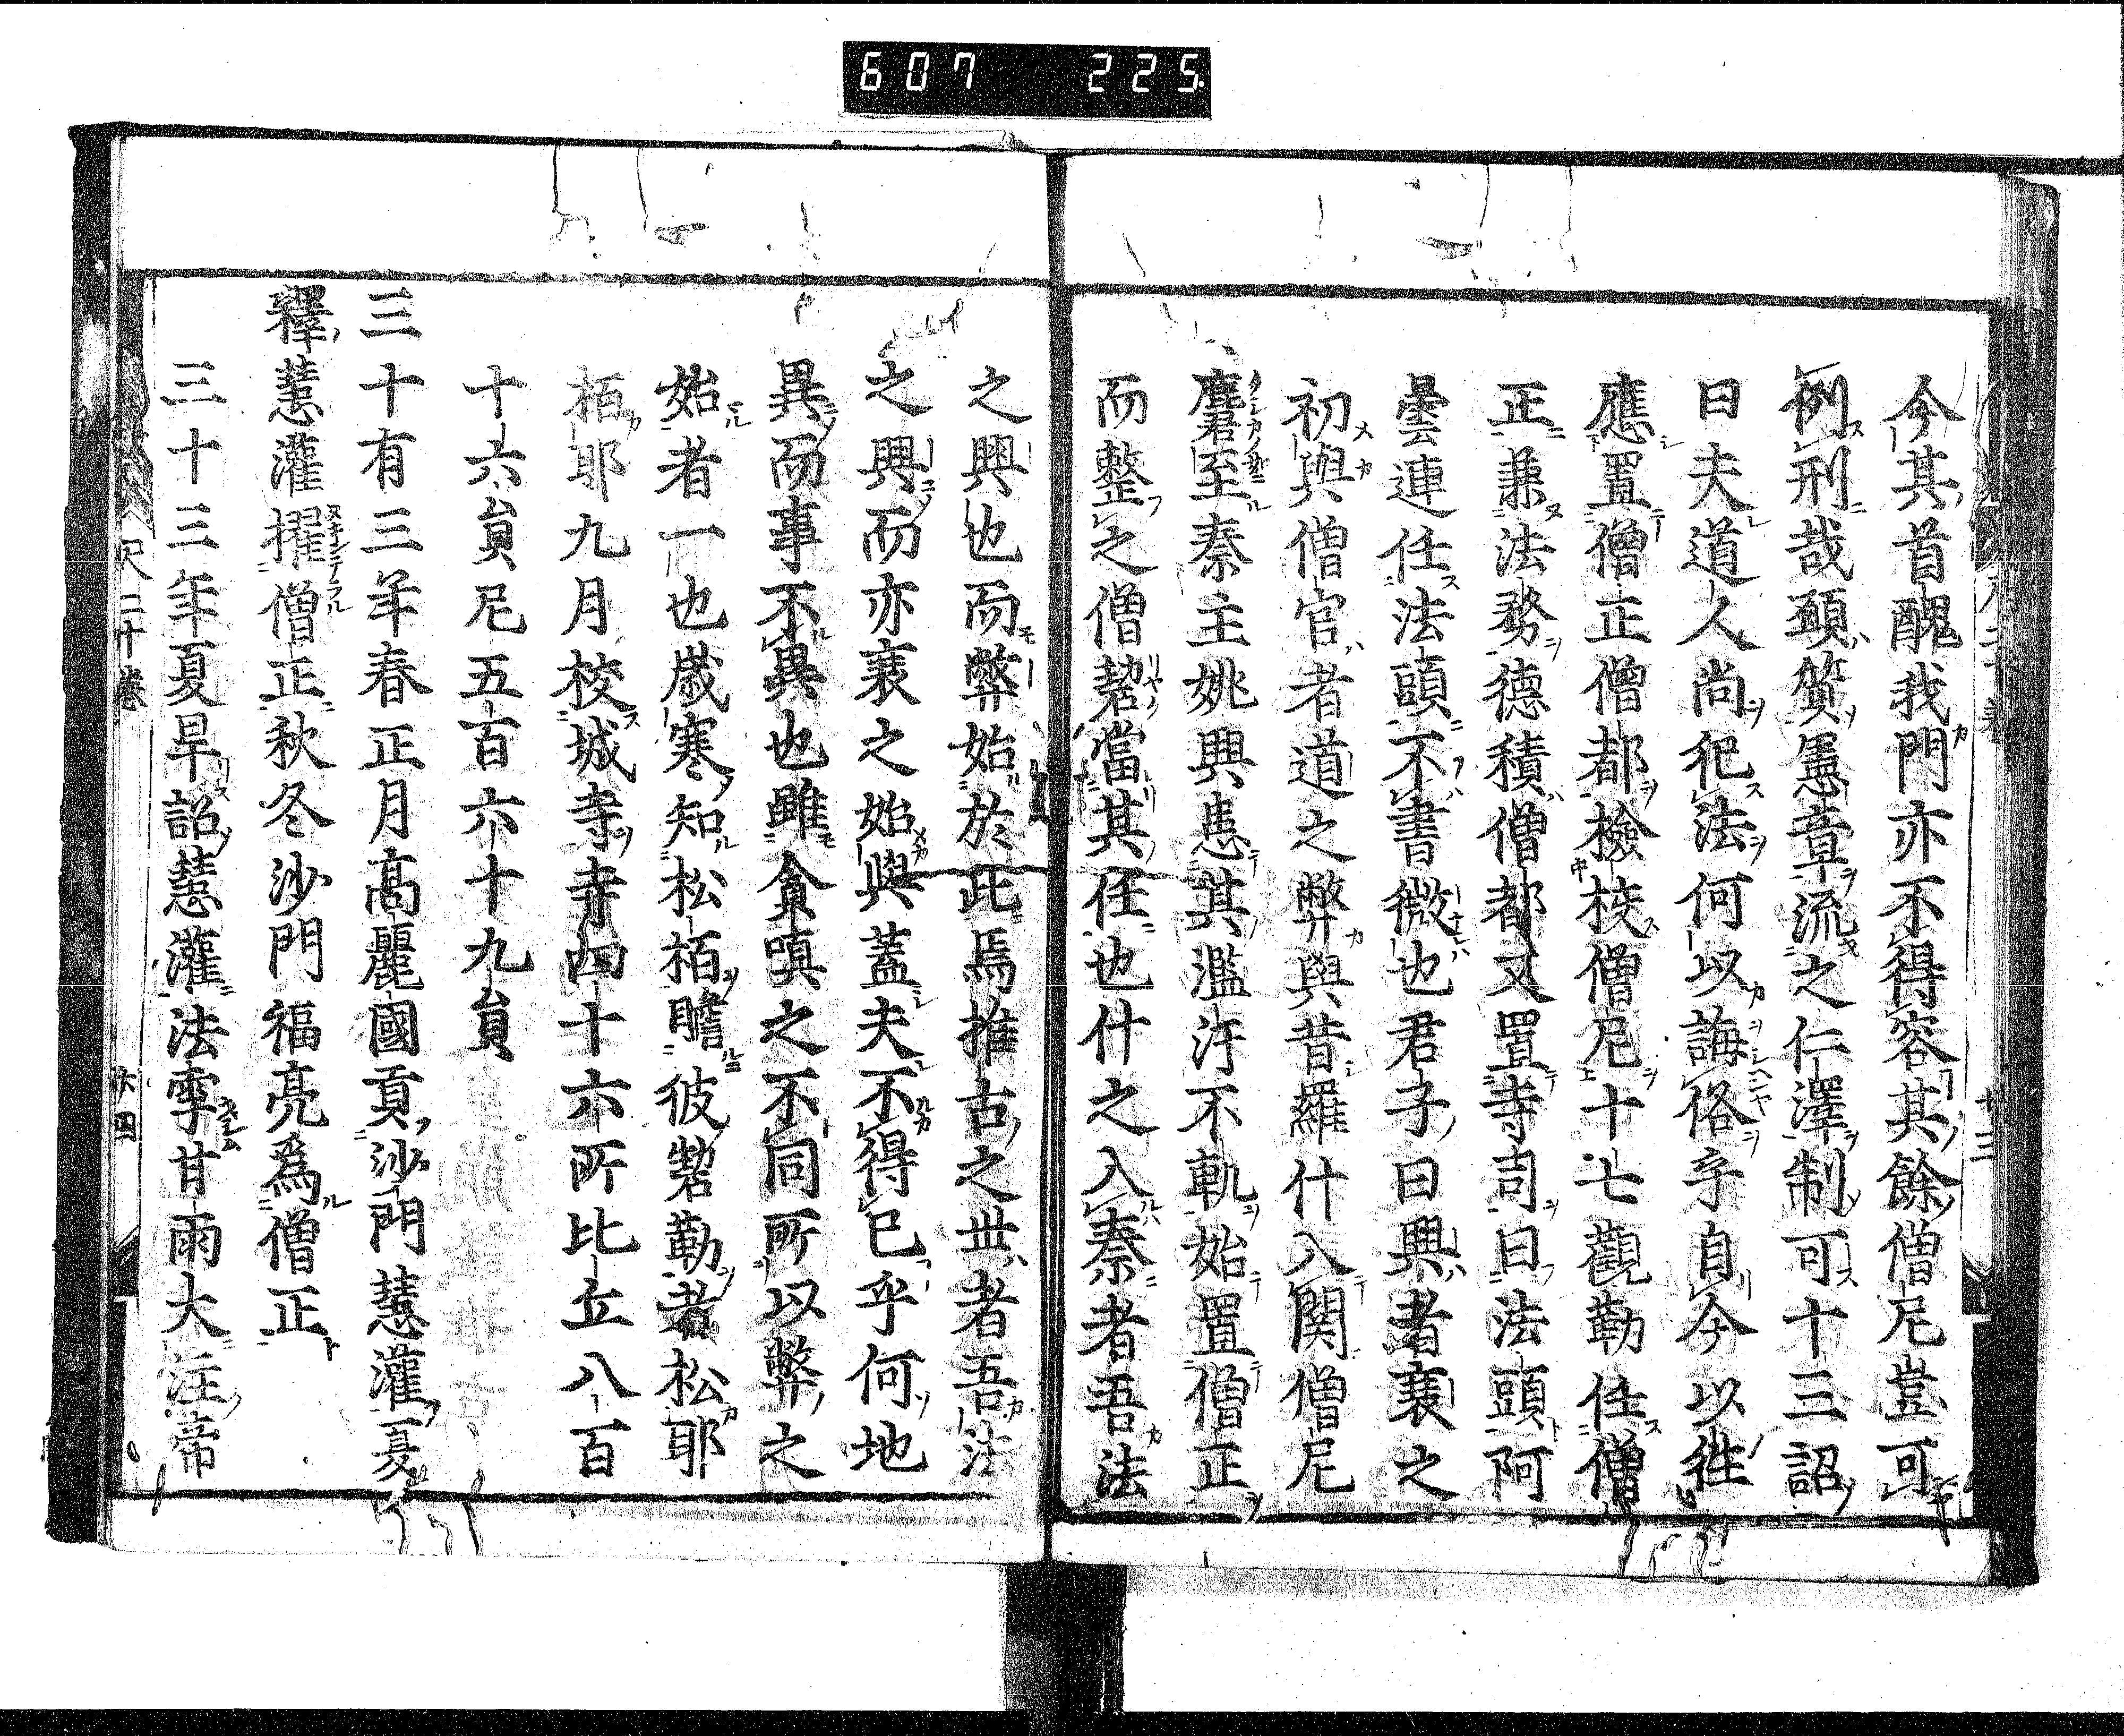 607 225
今其首醜我門亦不得容其餘僧尼豈可
例刑哉頋質憲章流之仁澤制可十三詔
曰夫道人尚犯法何以誨俗乎自今以徃
應置僧正僧都檢挍僧尼十七觀勒任僧
正兼法務德積僧都又置寺司曰法頭阿
曇連任法頭不書微也君子曰興者衰之
初與僧官者道之弊與昔羅什入関僧尼
麏至秦主姚興患其濫汙不軌始置僧正
而整之僧䂮當其任也什之入秦者吾法
之興也而弊始於此焉推古之世者吾法
之興而亦衰之始與蓋夫不得已乎何地
異而事不異也雖貪嗔之不同所以弊之
始者一也歳寒知松栢瞻彼䂮勒者松耶
栢耶九月校城寺寺四十六所比丘八百
十六員尼五百六十九員
三十有三年春正月高麗國貢沙門慧灌夏
釋慧灌擢僧正秋冬沙門福亮爲僧正
三十三年夏旱詔慧灌法雩甘雨大注帝